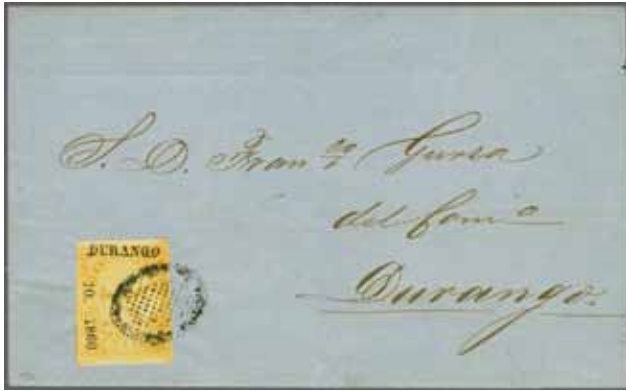 S. D. Fran.co Gursa
del Com.o
Durango.
DURANGO
10 1866